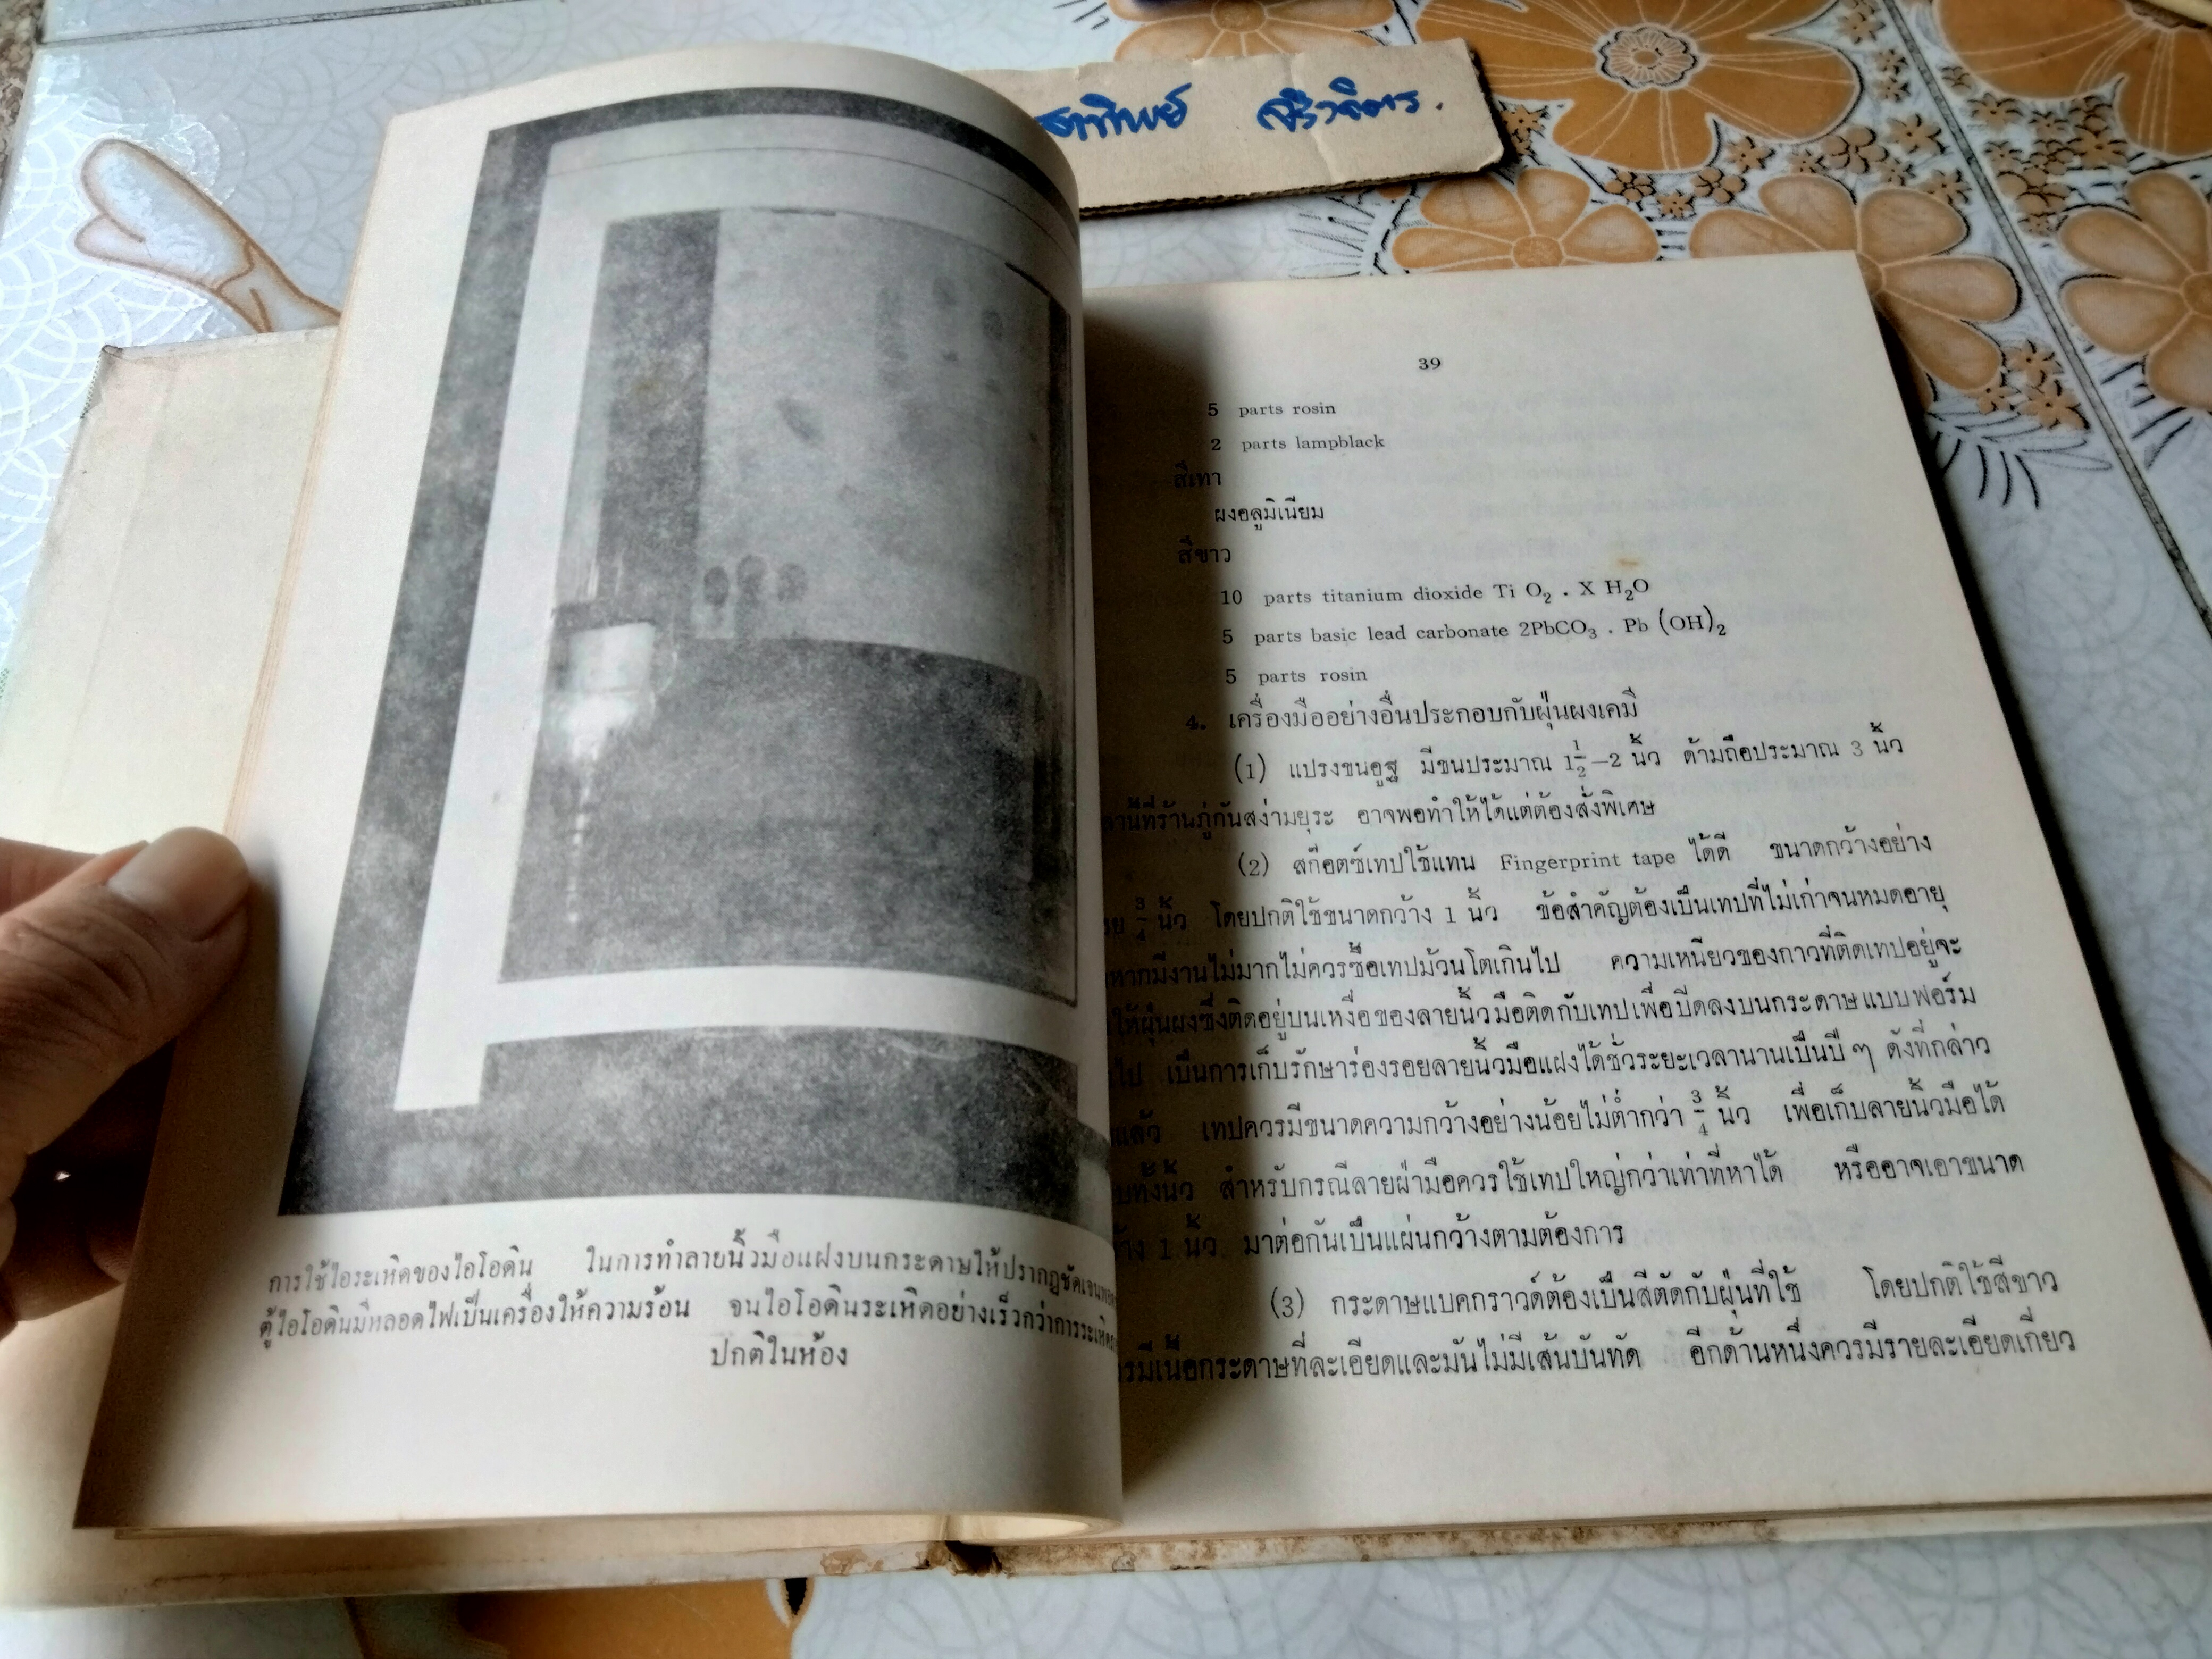 การใช้ไอระเหิดของไอโอดิน ในการทำลายนิ้วมือแฝงบนกระดาษให้ปรากฏชัดเจน
ตู้ไอโอดินมีหลอดไฟเป็นเครื่องให้ความร้อน จนไอโอดินระเหิดอย่างเร็วกว่าการระเหิด
ปกติในห้อง
39
5 parts rosin
2 parts lampblack
สีเทา
ผงอลูมิเนียม
สีขาว
10 parts titanium dioxide Ti O₂ . X H₂O
5 parts basic lead carbonate 2PbCO₃ . Pb (OH)₂
5 parts rosin
4. เครื่องมืออย่างอื่นประกอบกับฝุ่นผงเคมี
(1) แปรงขนอูฐ มีขนประมาณ 1½—2 นิ้ว ด้ามถือประมาณ 3 นิ้ว
ที่ร้านภู่กันสง่ามยุระ อาจพอทำให้ได้แต่ต้องสั่งพิเศษ
(2) สก๊อตซ์เทปใช้แทน Fingerprint tape ได้ดี ขนาดกว้างอย่าง
¾ นิ้ว โดยปกติใช้ขนาดกว้าง 1 นิ้ว ข้อสำคัญต้องเป็นเทปที่ไม่เก่าจนหมดอายุ
หากมีงานไม่มากไม่ควรซื้อเทปม้วนโตเกินไป ความเหนียวของกาวที่ติดเทปอยู่จะ
ให้ฝุ่นผงซึ่งติดอยู่บนเหงื่อของลายนิ้วมือติดกับเทปเพื่อปิดลงบนกระดาษแบบฟอร์ม
ไป เป็นการเก็บรักษาร่องรอยลายนิ้วมือแฝงได้ชั่วระยะเวลานานเป็นปี ๆ ดังที่กล่าว
แล้ว เทปควรมีขนาดความกว้างอย่างน้อยไม่ต่ำกว่า ¾ นิ้ว เพื่อเก็บลายนิ้วมือได้
ทั้งนิ้ว สำหรับกรณีลายฝ่ามือควรใช้เทปใหญ่กว่าเท่าที่หาได้ หรืออาจเอาขนาด
1 นิ้ว มาต่อกันเป็นแผ่นกว้างตามต้องการ
(3) กระดาษแบคกราวด์ต้องเป็นสีตัดกับฝุ่นที่ใช้ โดยปกติใช้สีขาว
มีเนื้อกระดาษที่ละเอียดและมันไม่มีเส้นบันทัด อีกด้านหนึ่งควรมีรายละเอียดเกี่ยว